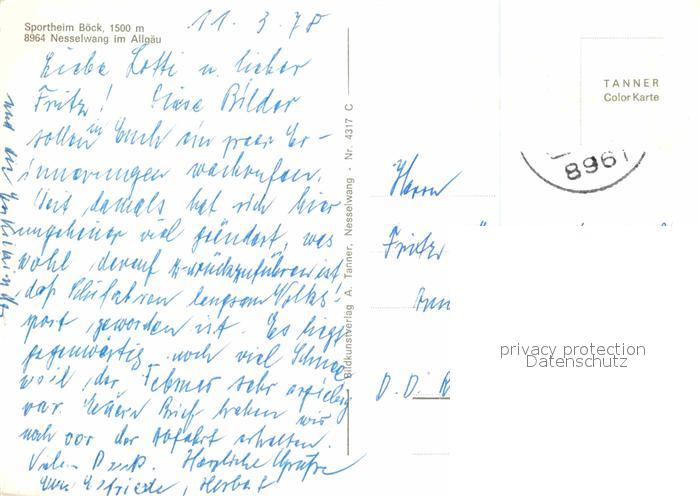 Sportheim Böck, 1500 m
8964 Nesselwang im Allgäu
11.3.78
Liebe Lotti u. lieber
Fritz! Diese Bilder
sollen in Euch ein paar Er-
innerungen wachrufen.
Seit damals hat sich hier
ungeheuer viel geändert, was
wohl darauf zurückzuführen ist,
daß Schifahren langsam Volks-
sport geworden ist. Es liegt
gegenwärtig noch viel Schnee
weil der Februar sehr ergiebig
war. Euern Brief haben wir
noch vor der Abfahrt erhalten.
Vielen Dank. Herzliche Grüße
Eure Elfriede, Herbert
und die Enkelkinder
Bildkunstverlag A. Tanner, Nesselwang - Nr. 4317 C
TANNER
Color Karte
8961
Herrn
Fritz
D.D.
privacy protection
Datenschutz